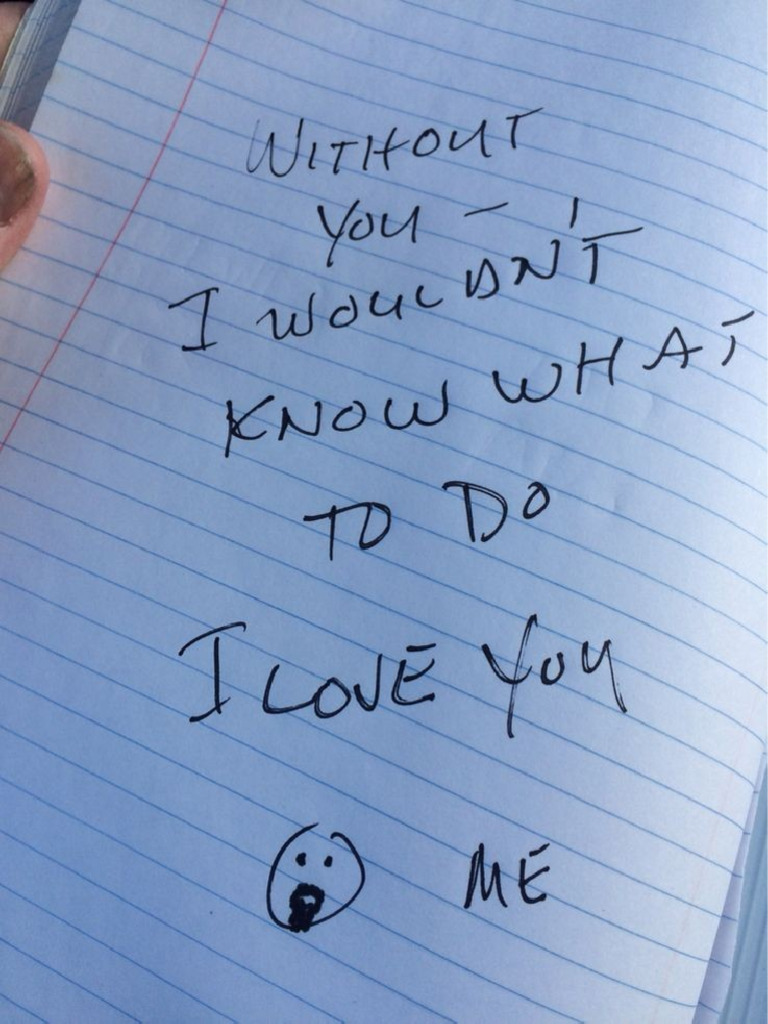 WITHOUT
YOU –
I WOULDN'T
KNOW WHAT
TO DO
I LOVE YOU
ME